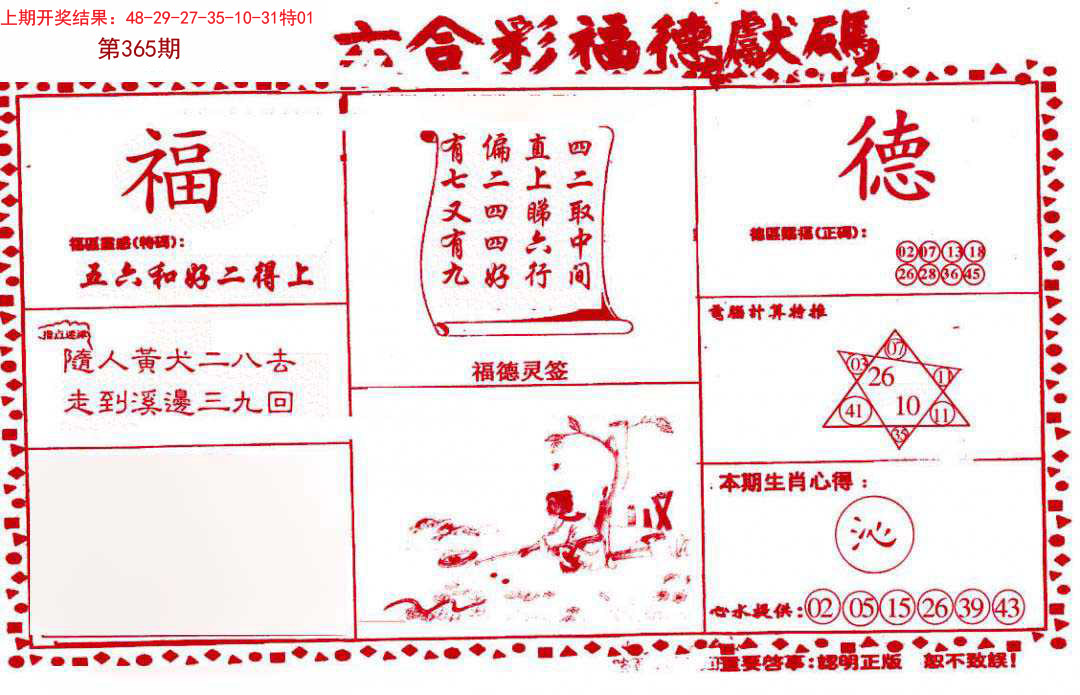 上期开奖结果：48-29-27-35-10-31特01
第365期
六合彩福德獻碼
福
福區靈感(特碼)：
五六和好二得上
隨人黃犬二八去
走到溪邊三九回
四二取中间
直上睇六行
偏二四四好
有七又有九
福德灵签
德
德區賜福(正碼)：
02 07 13 18
26 28 36 45
電腦計算特推
07
03 26 11
41 10 11
35
本期生肖心得：
沁
心水提供：02 05 15 26 39 43
重要啓事：認明正版 恕不致誤！